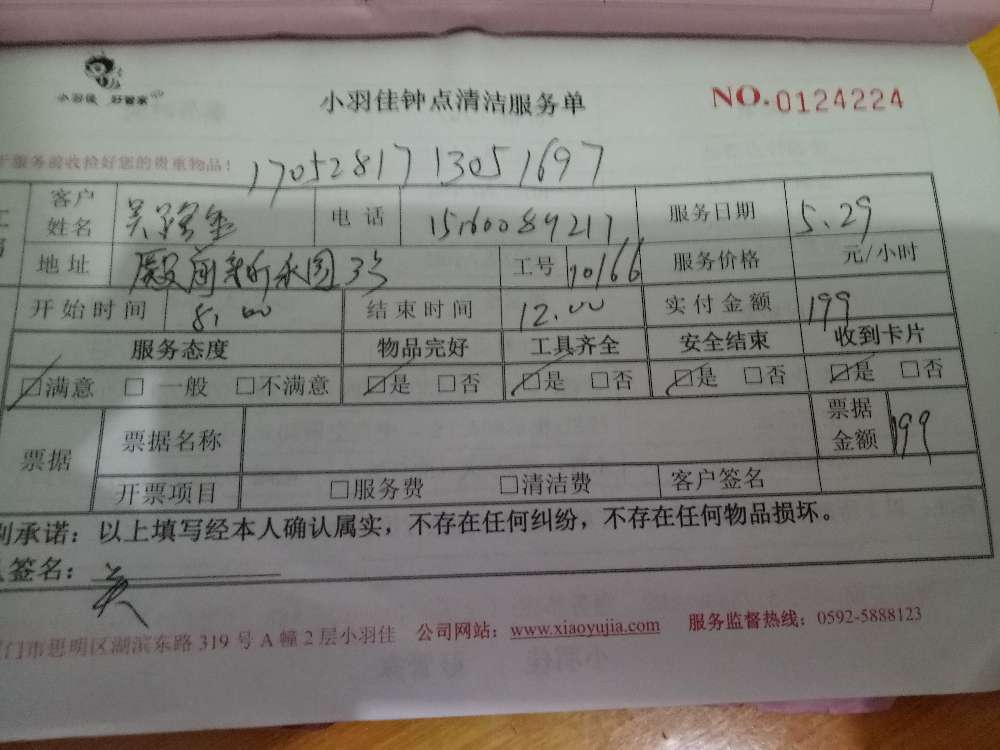 小羽佳 好管家
小羽佳钟点清洁服务单
NO.0124224
服务前收捡好您的贵重物品！
17052817 13051697
客户姓名 吴 电话 服务日期 5.29
地址 殿前 3号 工号 服务价格 元/小时
开始时间 8:00 结束时间 12:00 实付金额 199
服务态度 物品完好 工具齐全 安全结束 收到卡片
☑满意 □一般 □不满意 ☑是 □否 ☑是 □否 ☑是 □否 ☑是 □否
票据 票据名称 票据金额 199
开票项目 □服务费 □清洁费 客户签名
承诺：以上填写经本人确认属实，不存在任何纠纷，不存在任何物品损坏。
签名：吴
门市思明区湖滨东路319号A幢2层小羽佳 公司网站：www.xiaoyujia.com 服务监督热线：0592-5888123